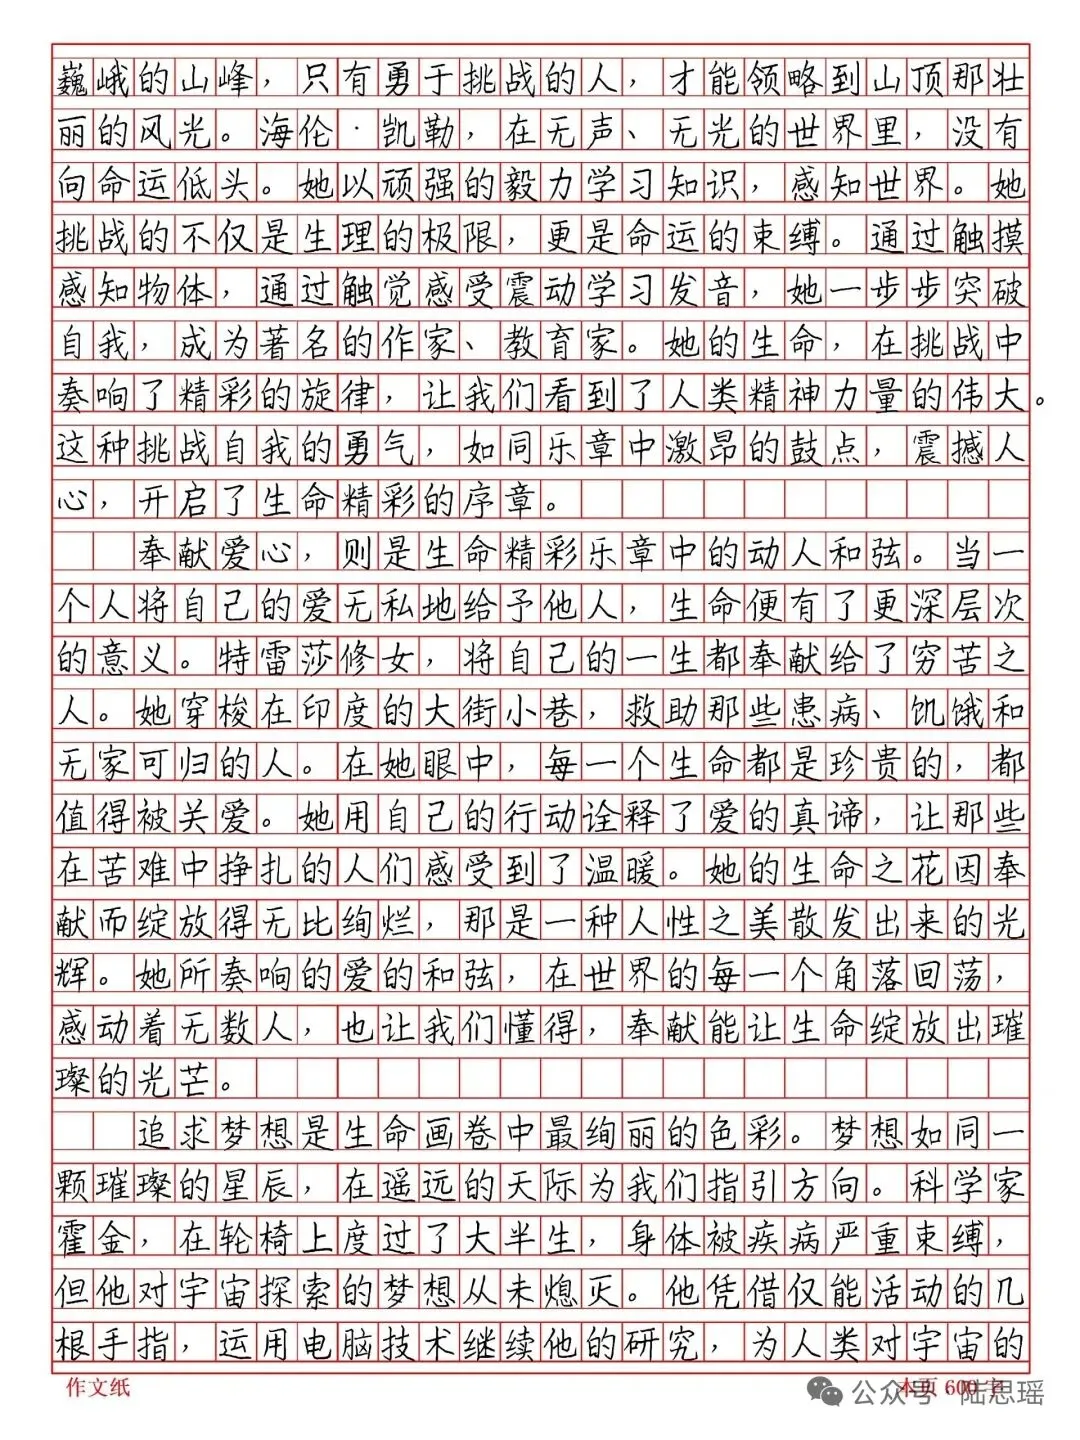 巍峨的山峰，只有勇于挑战的人，才能领略到山顶那壮
丽的风光。海伦·凯勒，在无声、无光的世界里，没有
向命运低头。她以顽强的毅力学习知识，感知世界。她
挑战的不仅是生理的极限，更是命运的束缚。通过触摸
感知物体，通过触觉感受震动学习发音，她一步步突破
自我，成为著名的作家、教育家。她的生命，在挑战中
奏响了精彩的旋律，让我们看到了人类精神力量的伟大。
这种挑战自我的勇气，如同乐章中激昂的鼓点，震撼人
心，开启了生命精彩的序章。
奉献爱心，则是生命精彩乐章中的动人和弦。当一
个人将自己的爱无私地给予他人，生命便有了更深层次
的意义。特雷莎修女，将自己的一生都奉献给了穷苦之
人。她穿梭在印度的大街小巷，救助那些患病、饥饿和
无家可归的人。在她眼中，每一个生命都是珍贵的，都
值得被关爱。她用自己的行动诠释了爱的真谛，让那些
在苦难中挣扎的人们感受到了温暖。她的生命之花因奉
献而绽放得无比绚烂，那是一种人性之美散发出来的光
辉。她所奏响的爱的和弦，在世界的每一个角落回荡，
感动着无数人，也让我们懂得，奉献能让生命绽放出璀
璨的光芒。
追求梦想是生命画卷中最绚丽的色彩。梦想如同一
颗璀璨的星辰，在遥远的天际为我们指引方向。科学家
霍金，在轮椅上度过了大半生，身体被疾病严重束缚，
但他对宇宙探索的梦想从未熄灭。他凭借仅能活动的几
根手指，运用电脑技术继续他的研究，为人类对宇宙的
作文纸 本页 600 字
公众号·陆思瑶